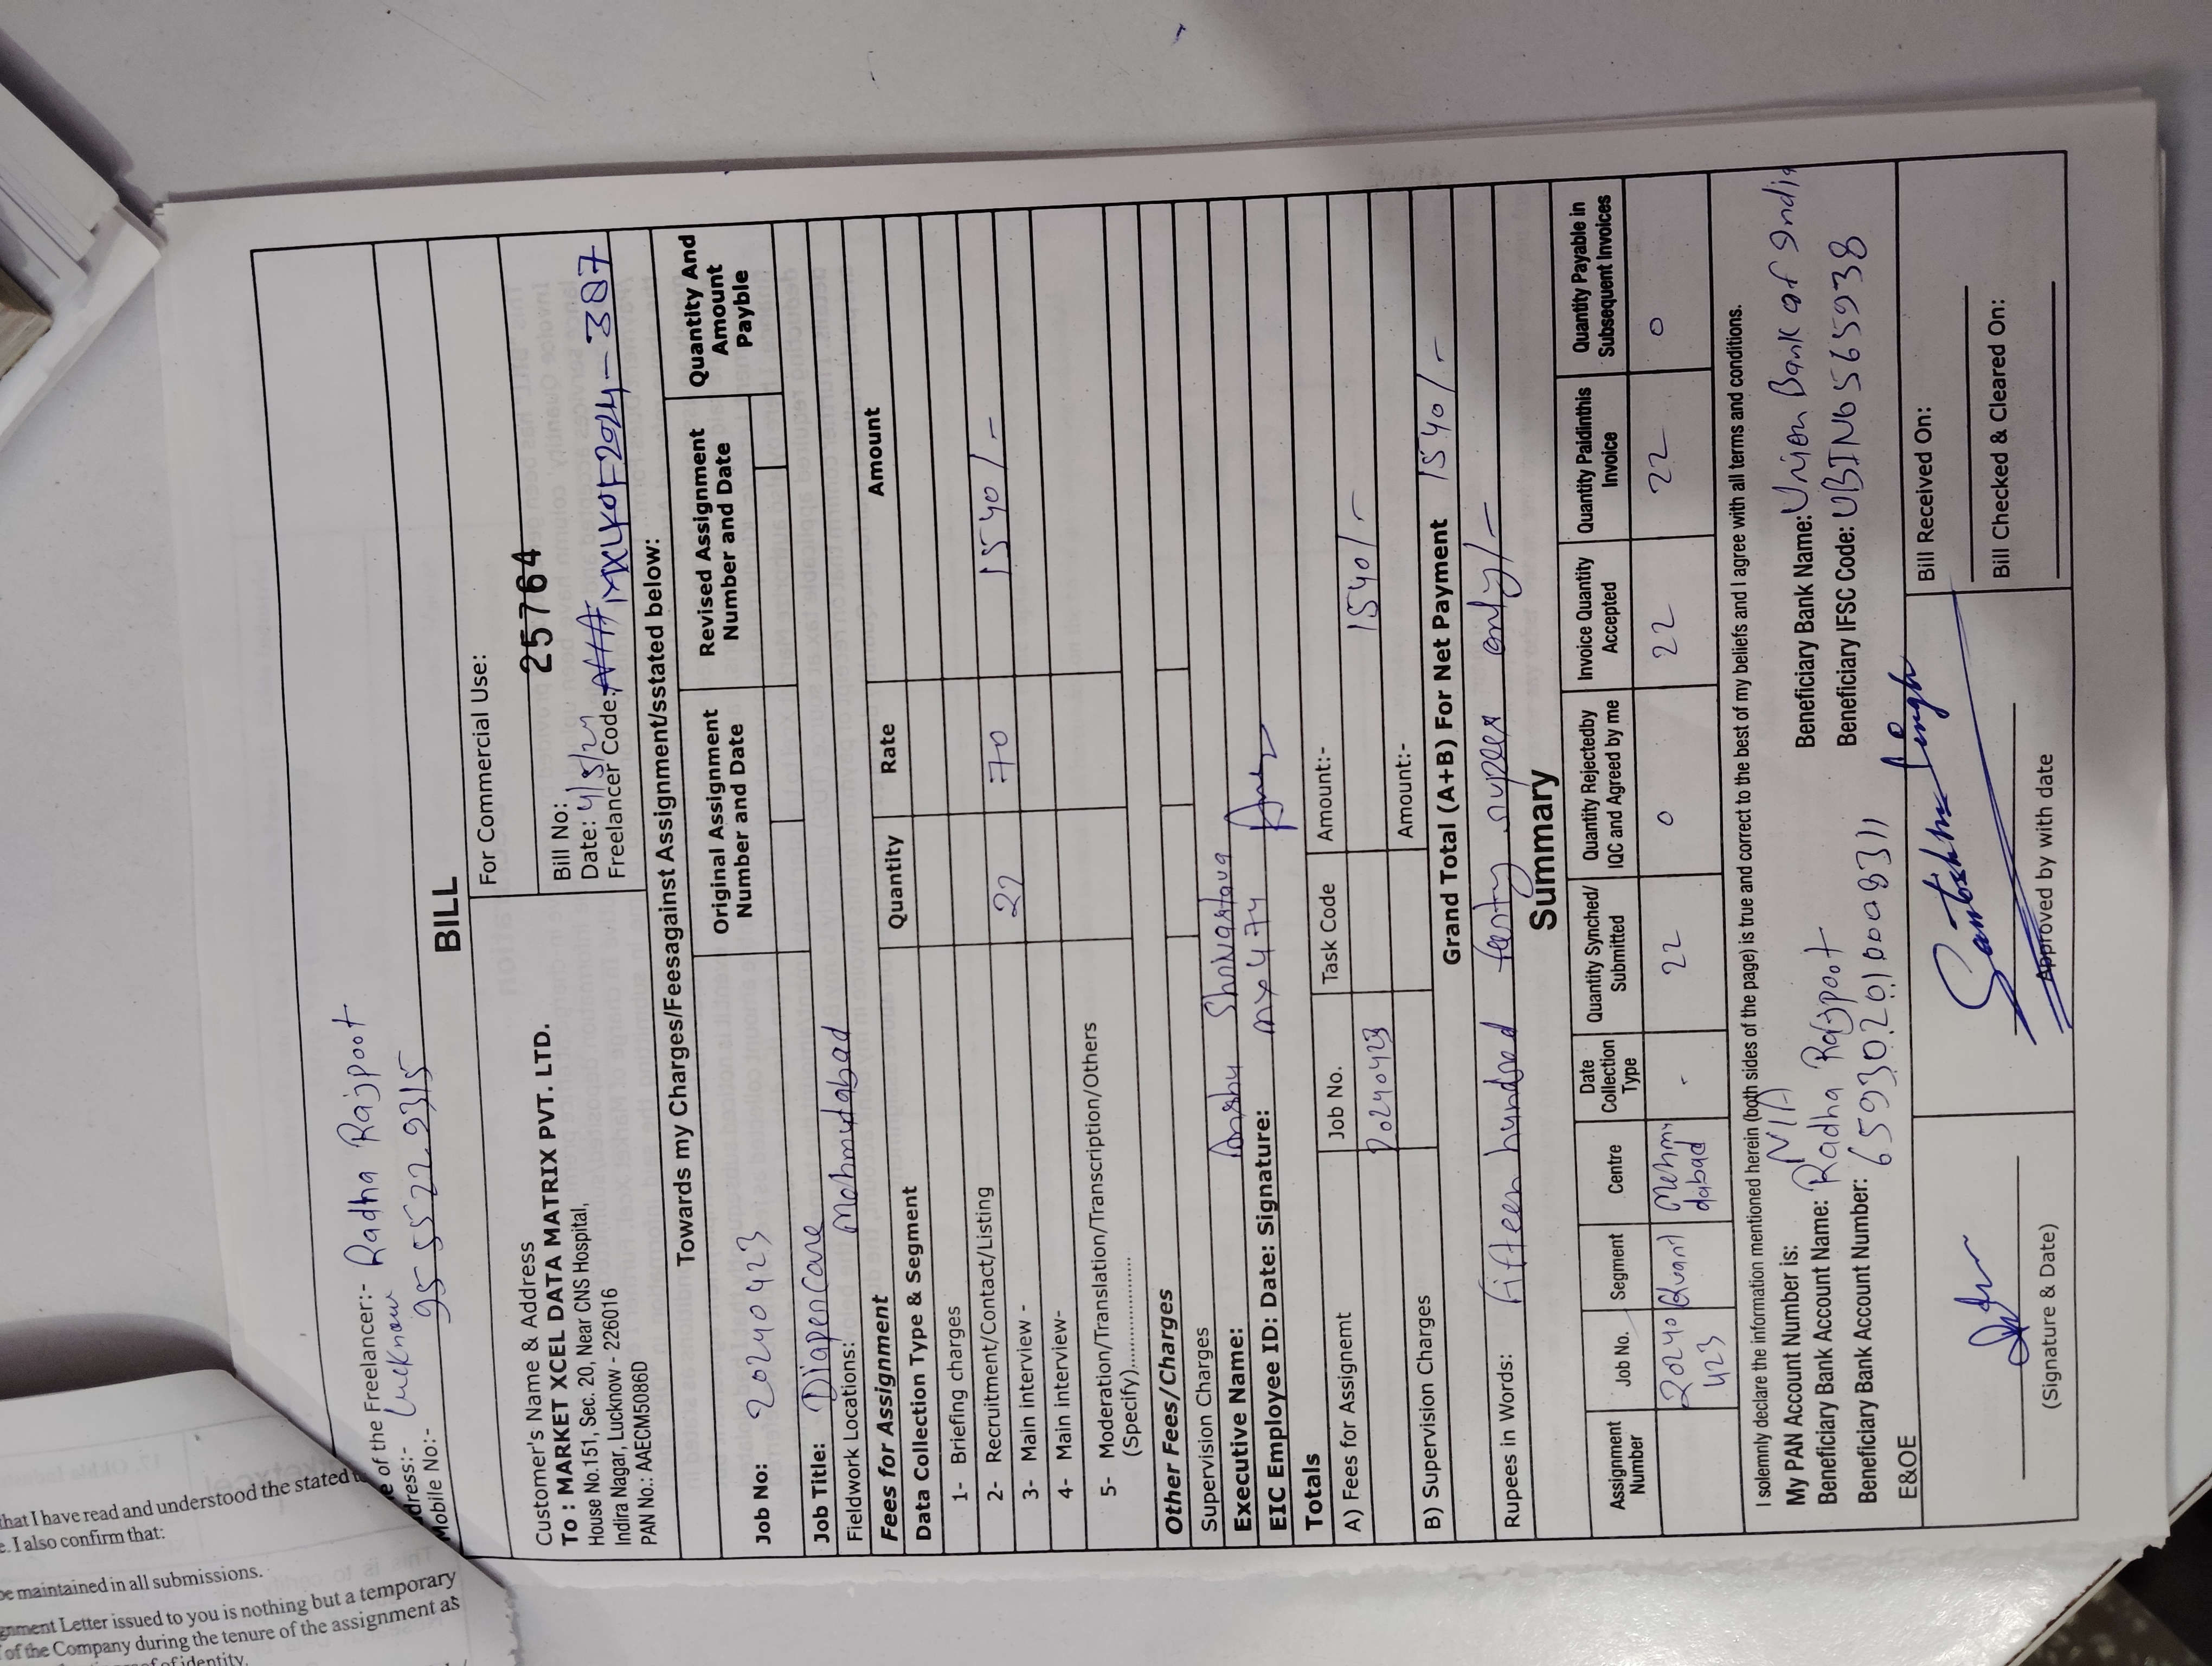 that I have read and understood the stated
e. I also confirm that:
be maintained in all submissions.
gnment Letter issued to you is nothing but a temporary
of the Company during the tenure of the assignment as
of identity.
e of the Freelancer:- Radha Rajpoot
dress:- Lucknow
Mobile No:- 95 5522 9315
BILL
Customer's Name & Address
To : MARKET XCEL DATA MATRIX PVT. LTD.
House No.151, Sec. 20, Near CNS Hospital,
Indira Nagar, Lucknow - 226016
PAN No.: AAECM5086D
For Commercial Use:
25764
Bill No:
Date: 4/5/24
Freelancer Code: MXLKOF2024-387
Towards my Charges/Feesagainst Assignment/sstated below:
Job No: 20240423
Original Assignment Number and Date
Revised Assignment Number and Date
Quantity And Amount Payable
Job Title: Diapercare
Fieldwork Locations: Mahmudabad
Fees for Assignment
Data Collection Type & Segment Quantity Rate Amount
1- Briefing charges
2- Recruitment/Contact/Listing 22 70 1540/-
3- Main interview -
4- Main interview-
5- Moderation/Translation/Transcription/Others
(Specify)..................
Other Fees/Charges
Supervision Charges
Executive Name: Anshu Shrivastava
EIC Employee ID: Date: Signature: mx474
Totals Job No. Task Code Amount:-
A) Fees for Assignemt 20240423 1540/-
B) Supervision Charges Amount:-
Grand Total (A+B) For Net Payment 1540/-
Rupees in Words: Fifteen hundred fourty rupees only/-
Summary
Assignment Number Job No. Segment Centre Date Collection Type Quantity Synched/ Submitted Quantity Rejectedby IQC and Agreed by me Invoice Quantity Accepted Quantity Paidinthis Invoice Quantity Payable in Subsequent Invoices
20240423 Quant Mehmudabad - 22 0 22 22 0
I solemnly declare the information mentioned herein (both sides of the page) is true and correct to the best of my beliefs and I agree with all terms and conditions.
My PAN Account Number is: N/A
Beneficiary Bank Account Name: Radha Rajpoot Beneficiary Bank Name: Union Bank of India
Beneficiary Bank Account Number: 659302010008311 Beneficiary IFSC Code: UBIN0565938
E&OE
Santosh Singh
Bill Received On:
Bill Checked & Cleared On:
(Signature & Date)
Approved by with date